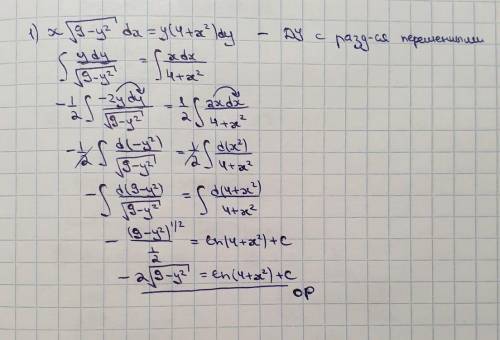 1) x√(9-y²) dx = y(4+x²)dy - ДУ с разд-ся переменными
∫ ydy/√(9-y²) = ∫ xdx/(4+x²)
-1/2 ∫ -2ydy/√(9-y²) = 1/2 ∫ 2xdx/(4+x²)
-1/2 ∫ d(-y²)/√(9-y²) = 1/2 ∫ d(x²)/(4+x²)
-∫ d(9-y²)/√(9-y²) = ∫ d(4+x²)/(4+x²)
-(9-y²)^(1/2)/(1/2) = ln(4+x²)+c
-2√(9-y²) = ln(4+x²)+c
ОР